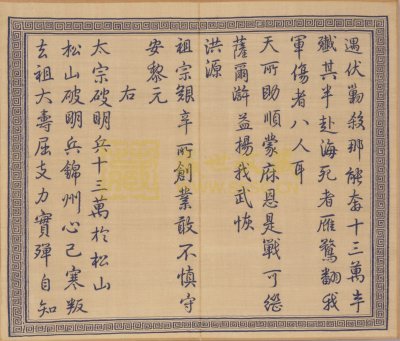 遇伏勦殺那能奮十三萬半
殱其半赴海死者雁驚翻我
軍傷者八人耳
天所助順蒙庥恩是戰可繼
薩爾滸益揚我武恢
洪源
祖宗艱辛所創業敢不慎守
安黎元
右
太宗破明兵十三萬於松山
松山破明兵錦州心已寒叛
去祖大壽屈支力實殫自知